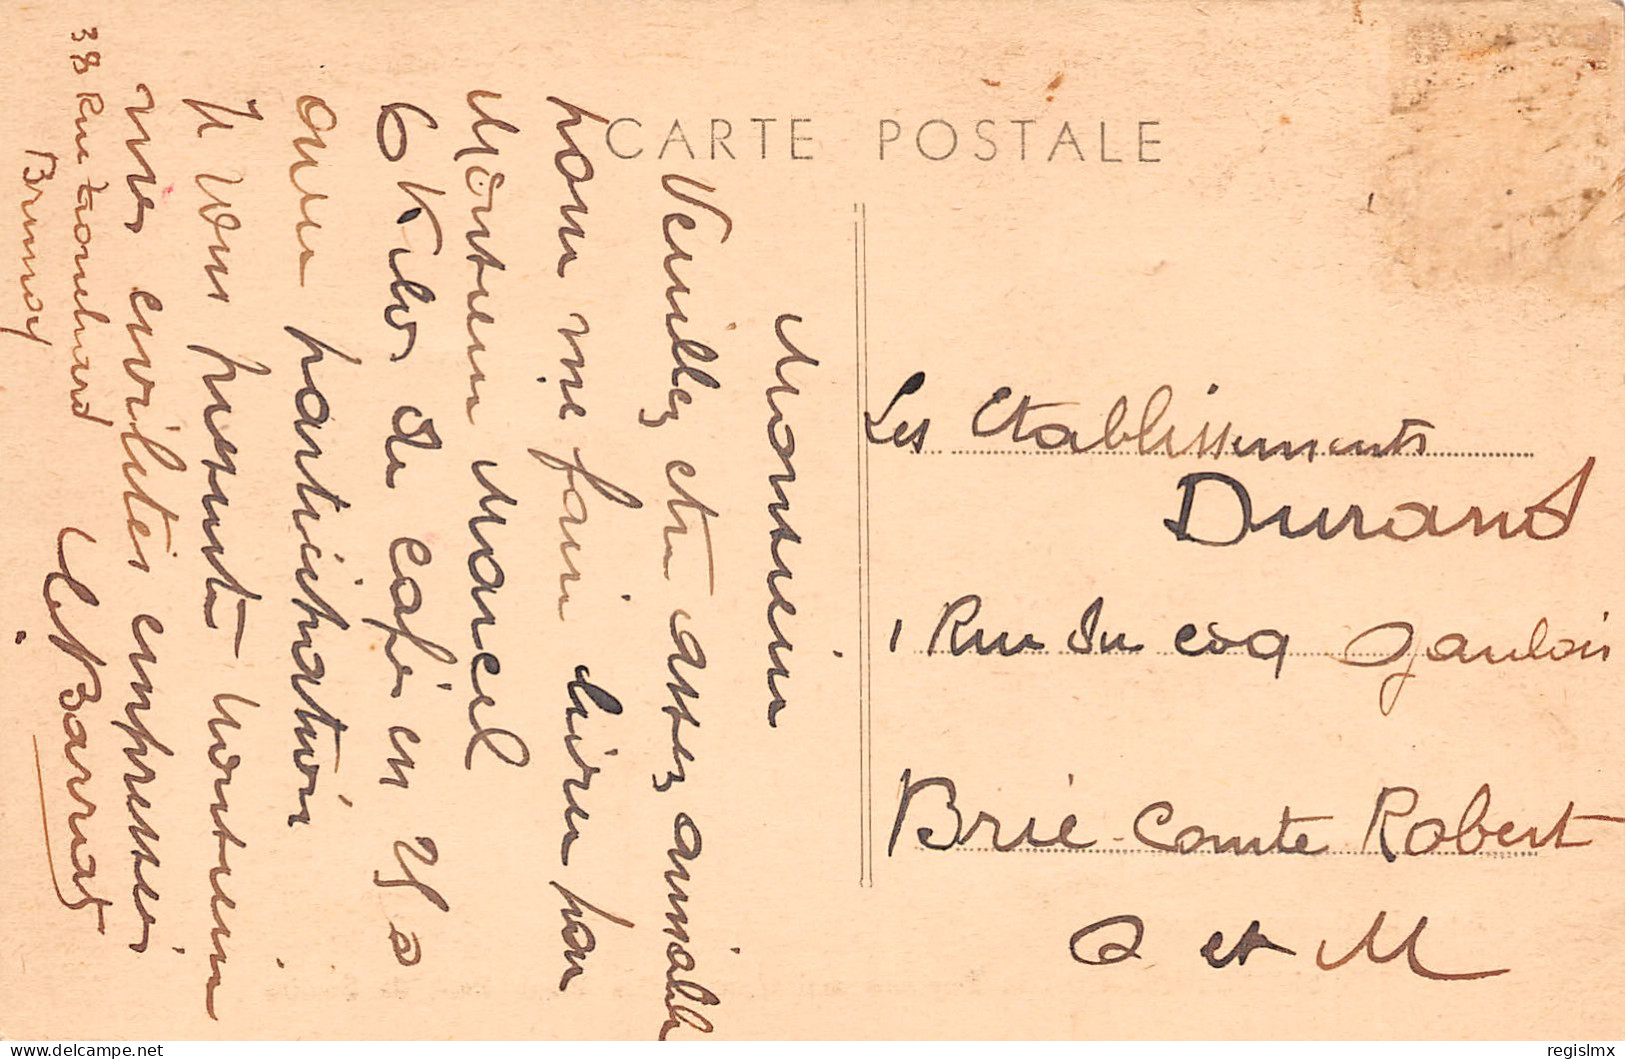 CARTE POSTALE
Monsieur
Veuillez etre assez aimiable
pour me faire livrer par
Monsieur Marcel
6 Kilos de café en 250
avec participation
Je vous presente Monsieur
mes civilités empressées
Barrat
38 Rue
Brunoy
Les Etablissements
Durand
1 Rue du coq Gaulois
Brie-Comte Robert
S et M
regislmx